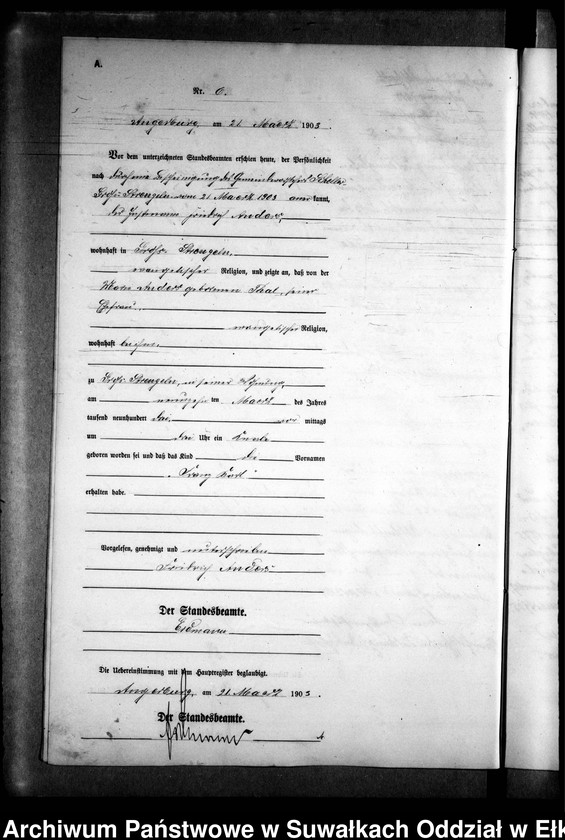 A.
Nr. 6.
Angerburg, am 21 Maerz 1903
Vor dem unterzeichneten Standesbeamten erschien heute, der Persönlichkeit
nach durch eine Bescheinigung des Gemeindevorstehers
Groß Strengeln vom 21 Maerz 1903 anerkannt,
der Instmann Friedrich Anders,
wohnhaft in Groß Strengeln,
evangelischer Religion, und zeigte an, daß von der
Anders geborenen Thal, seiner
Ehefrau
evangelischer Religion,
wohnhaft bei ihm,
zu Groß Strengeln, in seiner Wohnung,
am neunzehnten Maerz des Jahres
tausend neunhundert drei, vor mittags
um drei Uhr ein Knabe
geboren worden sei und daß das Kind die Vornamen
„Franz Karl"
erhalten habe.
Vorgelesen, genehmigt und unterschrieben
Friedrich Anders
Der Standesbeamte.
Erdmann
Die Uebereinstimmung mit dem Hauptregister beglaubigt.
Angerburg, am 21 Maerz 1903.
Der Standesbeamte.
Erdmann
A
Archiwum Państwowe w Suwałkach Oddział w Ełk